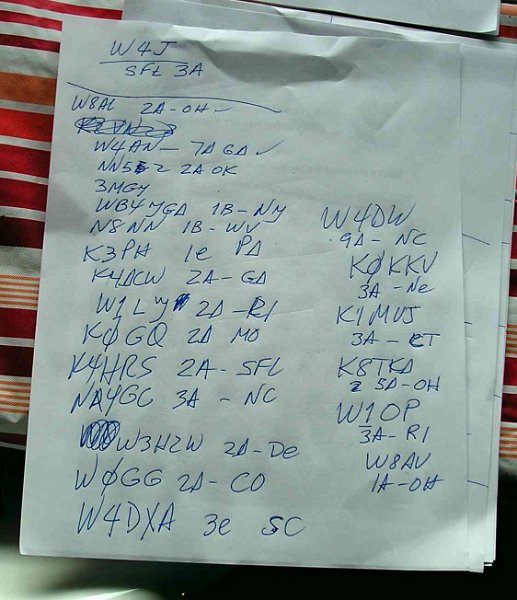 W4J
SFL 3A
W8AL 2A-OH ✓
W4AN- 7A GA ✓
2A OK
3MGY
WB4YGA 1B-NY
N8NN 1B-WV
K3PH 1e PA
K4ACW 2A-GA
W1LY 2A-RI
KØGQ 2A MO
K4HRS 2A-SFL
NA4GC 3A - NC
W3HZW 2A-De
WØGG 2A-CO
W4DXA 3e SC
W4DW
9A- NC
KØKKV
3A -Ne
K1MUJ
3A - CT
K8TKA
5A-OH
W1OP
3A-RI
W8AV
1A-OH